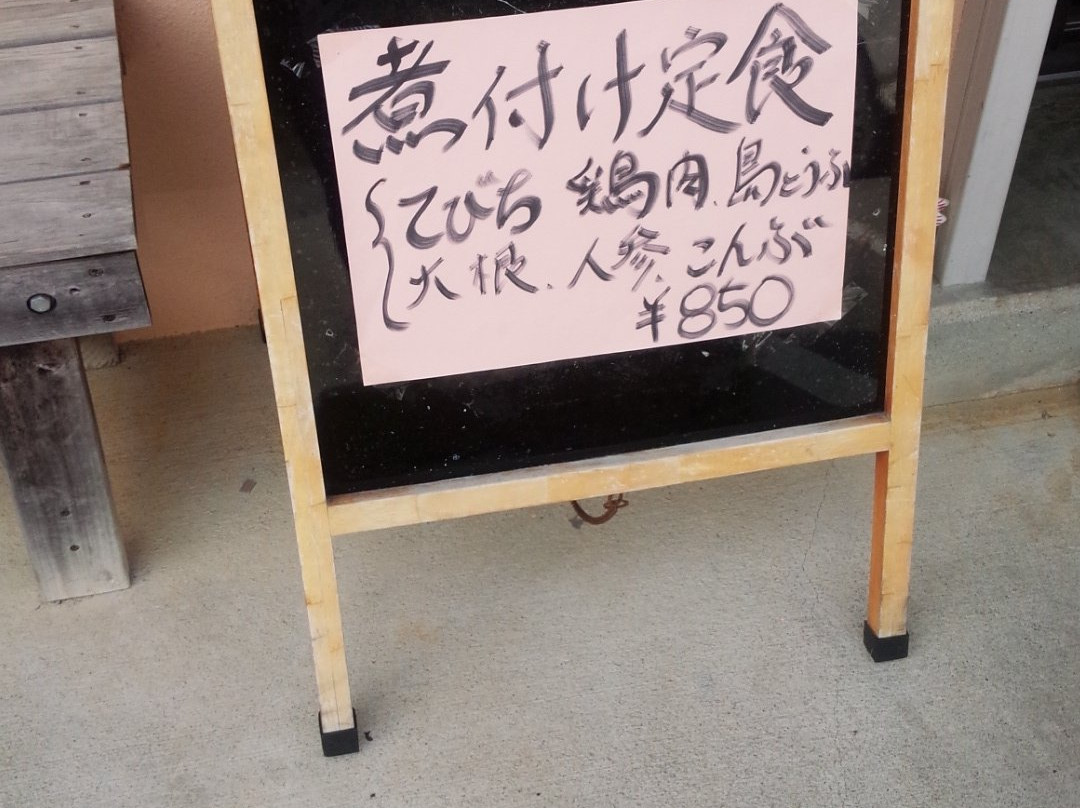 煮付け定食
てびち 鶏肉、島とうふ
大根、人参、こんぶ
¥850